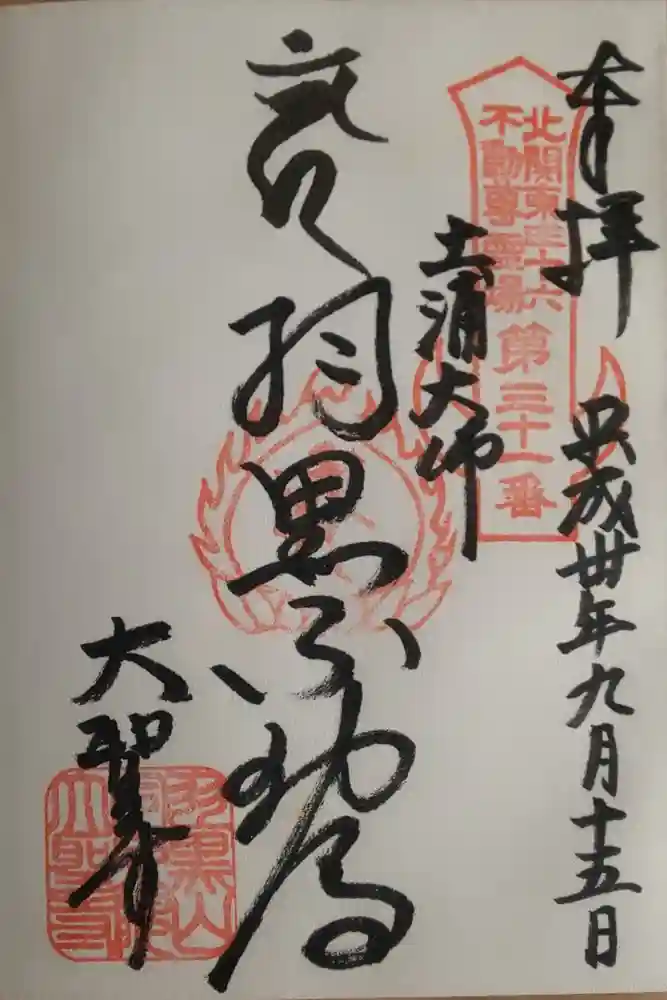 奉拝
平成丗年九月十五日
北関東三十六
不動尊霊場
第三十一番
土浦大師
羽黒不動尊
大聖寺
羽黒山
大聖寺